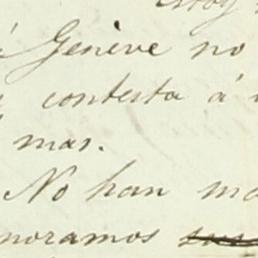 estoy
á Genève no
contesta á
mas.
No han ma
noramos